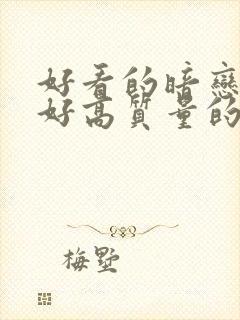 好看的暗戀
好高質量的
梅墅